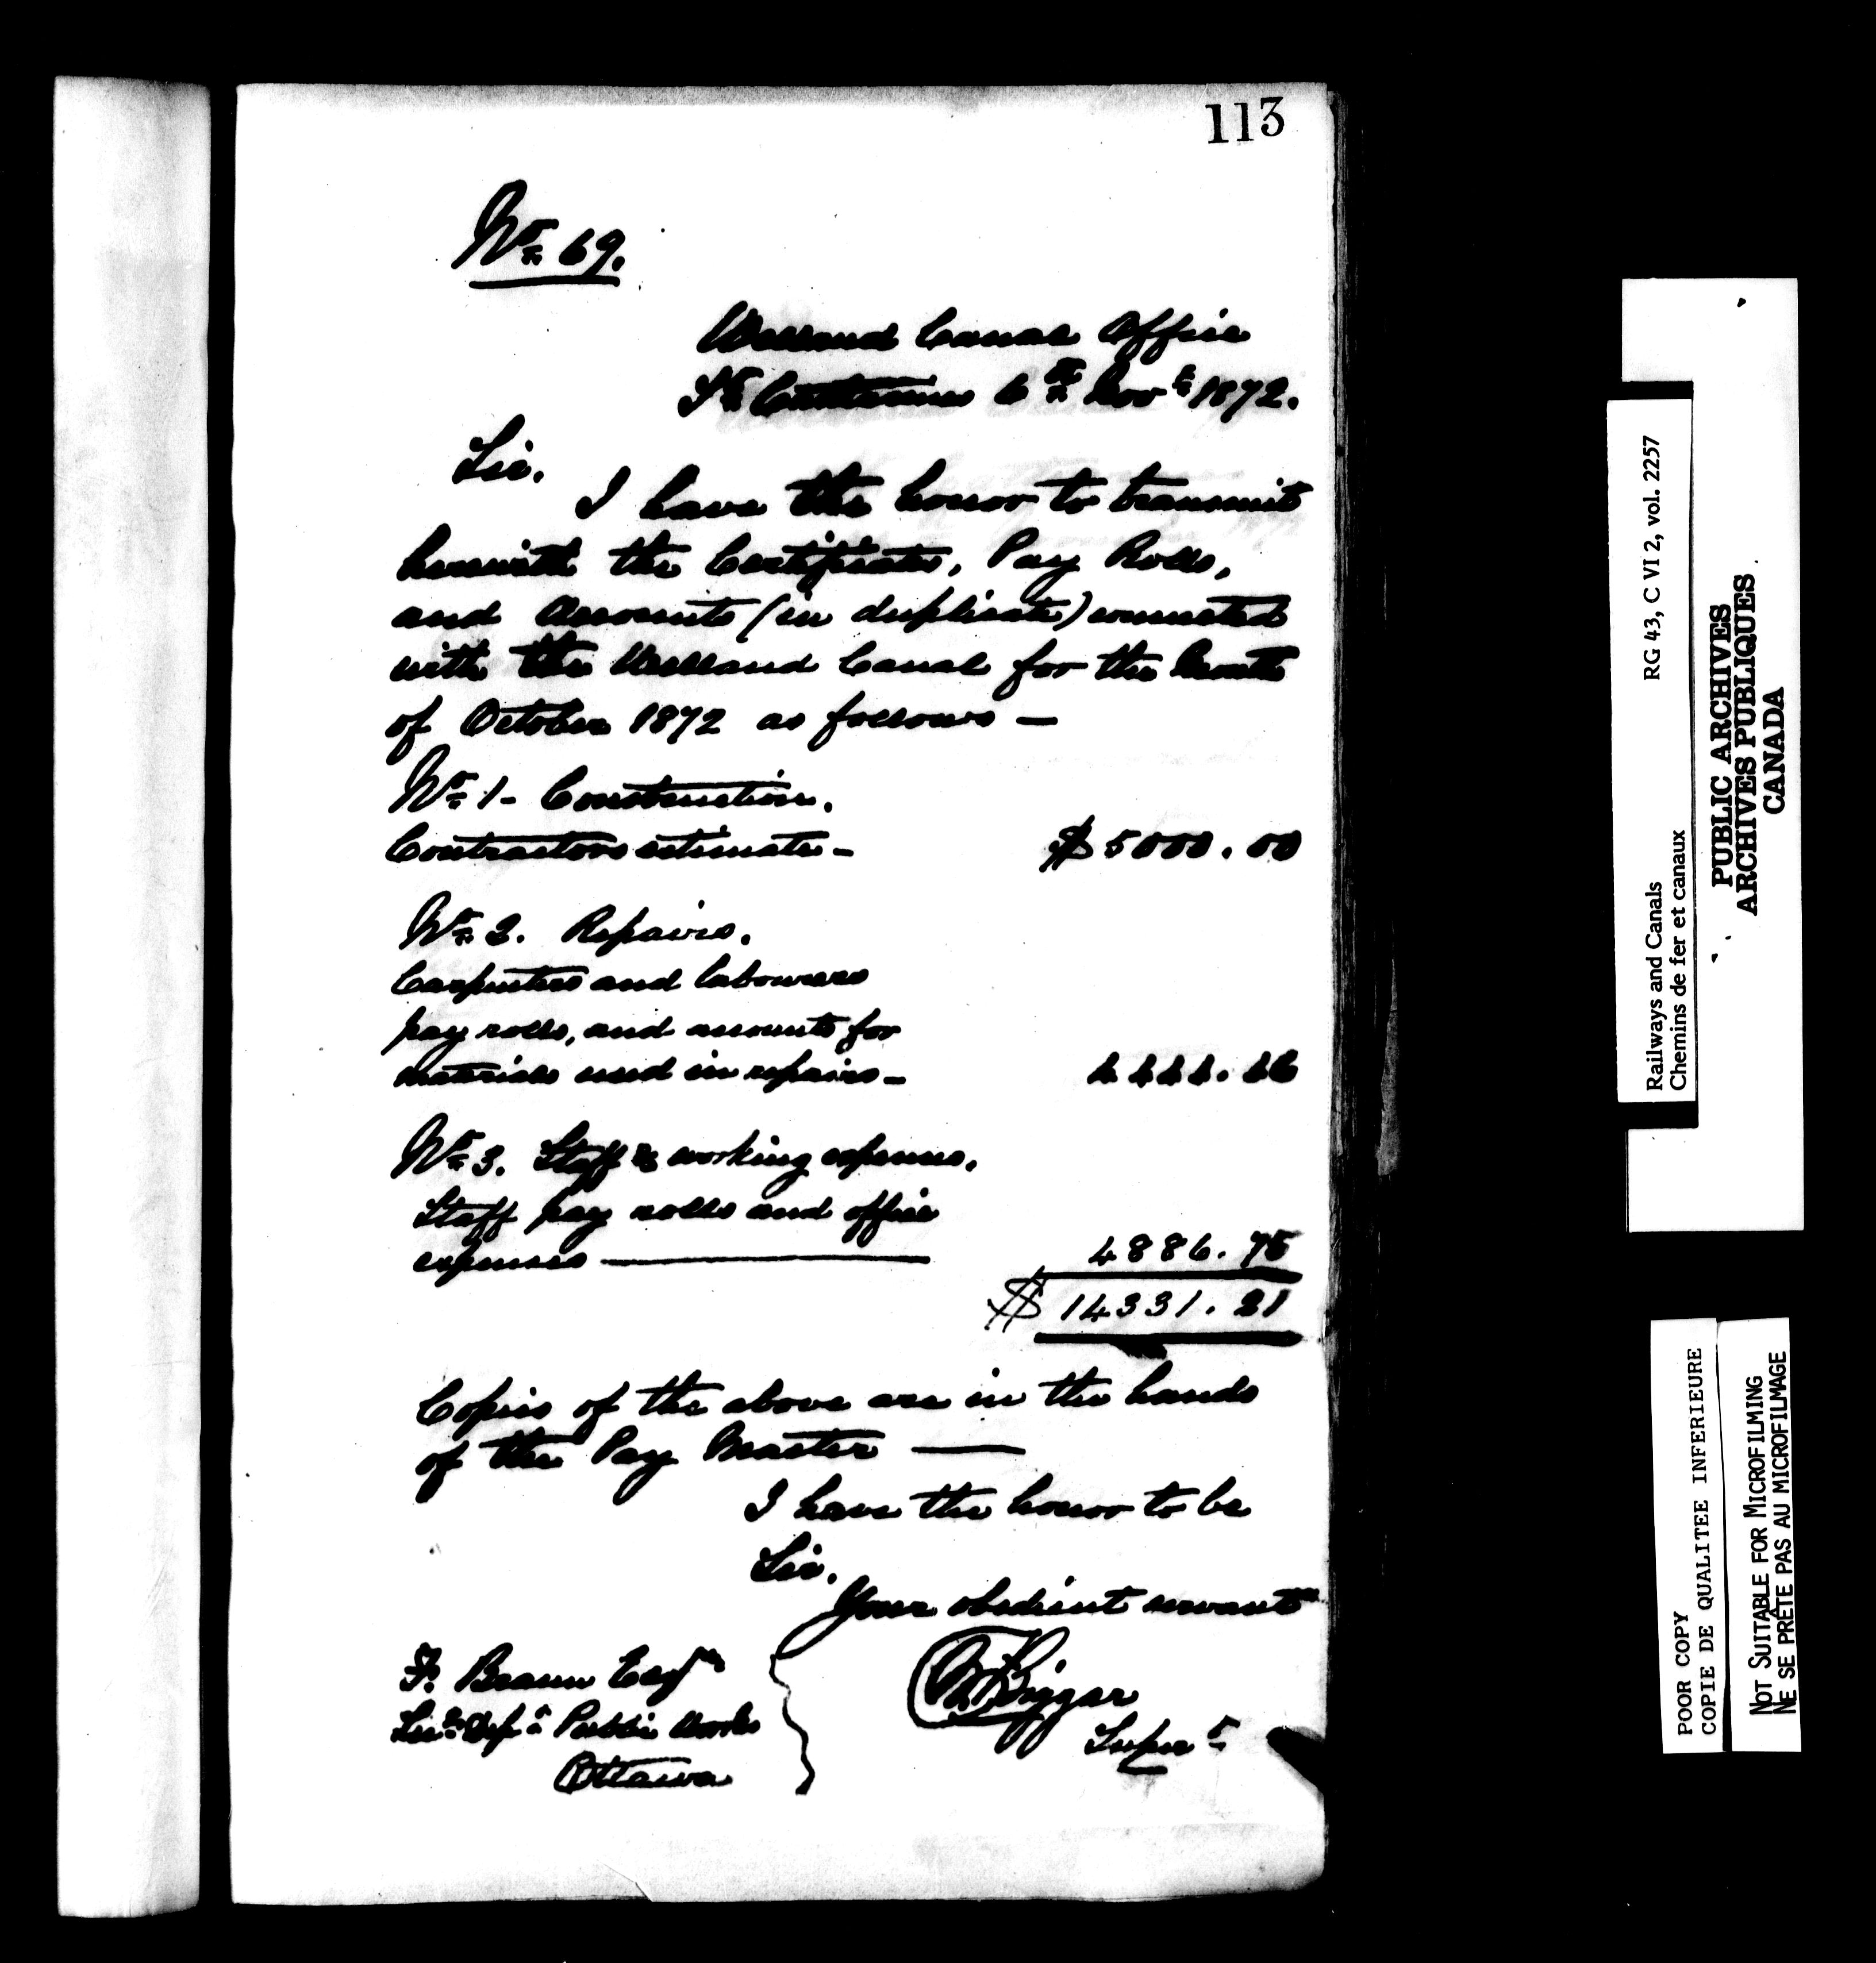 113
No 69.
Welland Canal Office
St Catharines 6th Novr 1872.
Sir.
I have the honor to transmit
herewith the Certificate, Pay Rolls,
and Accounts (in duplicate) connected
with the Welland Canal for the Month
of October 1872 as follows —
No 1 - Construction.
Contractors estimate - $ 5000.00
No 2. Repairs.
Carpenters and labourers
pay rolls, and accounts for
materials used in repairs - 4444.46
No 3. Staff & working expenses.
Staff pay rolls and office
expenses — 4886.75
$ 14331.21
Copies of the above are in the hands
of the Pay Master —
I have the honor to be
Sir.
Your obedient servant
F. Braun Esqr
Secy Dept Public Works
Ottawa
Biggar
Supt
RG 43, C VI 2, vol. 2257
Railways and Canals
Chemins de fer et canaux
PUBLIC ARCHIVES
ARCHIVES PUBLIQUES
CANADA
POOR COPY
COPIE DE QUALITEE INFERIEURE
NOT SUITABLE FOR MICROFILMING
NE SE PRÊTE PAS AU MICROFILMAGE